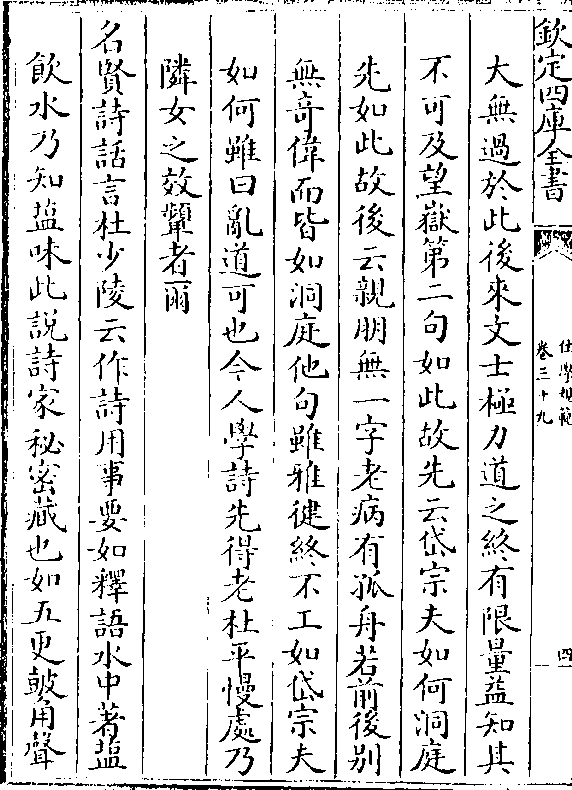 欽定四庫全書
仕學規範
卷三十九
四
大無過於此後來文士極力道之終有限量益知其
不可及望嶽第二句如此故先云岱宗夫如何洞庭
先如此故後云親朋無一字老病有孤舟若前後别
無竒偉而皆如洞庭他句雖雅健終不工如岱宗夫
如何雖曰亂道可也今人學詩先得老杜平慢處乃
隣女之效顰者爾
名賢詩話言杜少陵云作詩用事要如釋語水中著鹽
飲水乃知鹽味此說詩家秘密藏也如五更鼓角聲